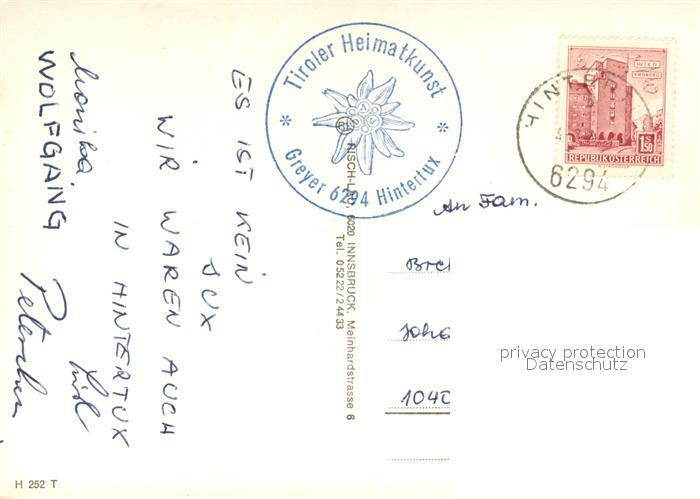 ES IST KEIN
JUX
WIR WAREN AUCH
IN HINTERTUX
Monika
WOLFGANG
Tiroler Heimatkunst
* *
Greyer 6294 Hintertux
RISCH-LAU, 6020 INNSBRUCK, Meinhardstrasse 6
Tel. 05222/24433
WIEN
ERDBERG
1.50
S
REPUBLIK ÖSTERREICH
HINTER
6294
An Fam.
1040
privacy protection
Datenschutz
H 252 T